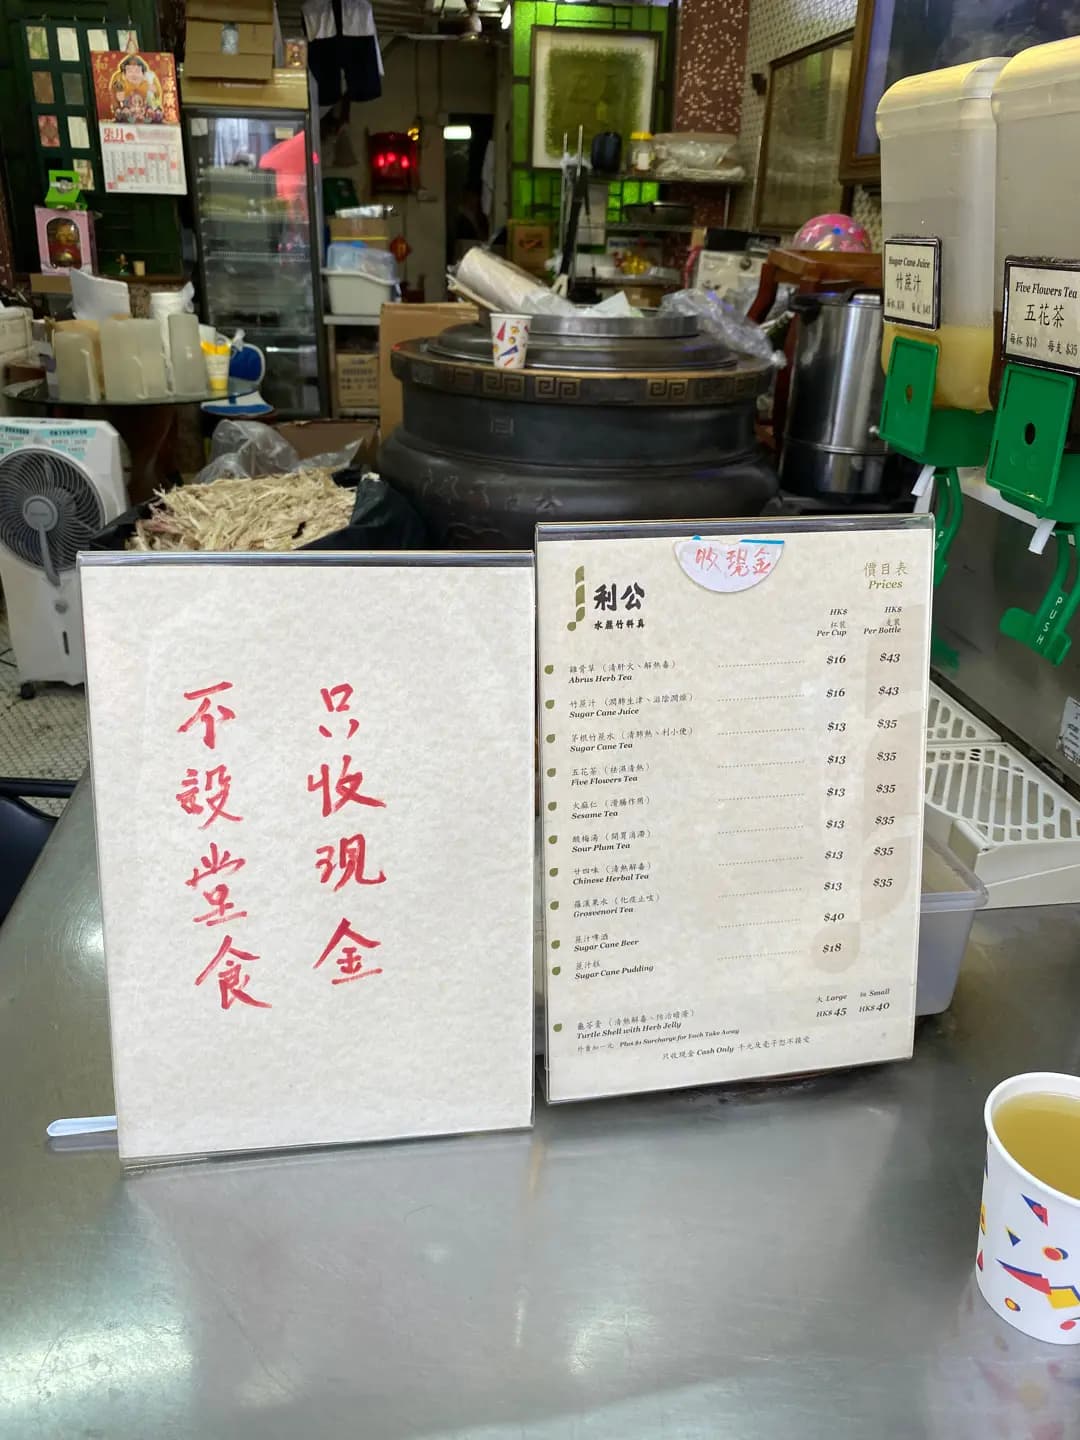 只收現金
不設堂食
收現金
利公
真料竹蔗水
價目表
Prices
HK$
杯裝
Per Cup
HK$
支裝
Per Bottle
雞骨草（清肝火、解熱毒） $16 $43
Abrus Herb Tea
竹蔗汁（潤肺生津、滋陰潤燥） $16 $43
Sugar Cane Juice
茅根竹蔗水（清肺熱、利小便） $13 $35
Sugar Cane Tea
五花茶（祛濕清熱） $13 $35
Five Flowers Tea
火麻仁（滑腸作用） $13 $35
Sesame Tea
酸梅湯（開胃消滯） $13 $35
Sour Plum Tea
廿四味（清熱解毒） $13 $35
Chinese Herbal Tea
羅漢果水（化痰止咳） $13 $35
Grosvenori Tea
蔗汁啤酒 $40
Sugar Cane Beer
蔗汁糕 $18
Sugar Cane Pudding
大 Large
細 Small
龜苓膏（清熱解毒、防治暗瘡） HK$ 45 HK$ 40
Turtle Shell with Herb Jelly
外賣加一元 Plus $1 Surcharge for Each Take Away
只收現金 Cash Only
Sugar Cane Juice
竹蔗汁
Five Flowers Tea
五花茶
每杯 $13 每支 $35
PUSH